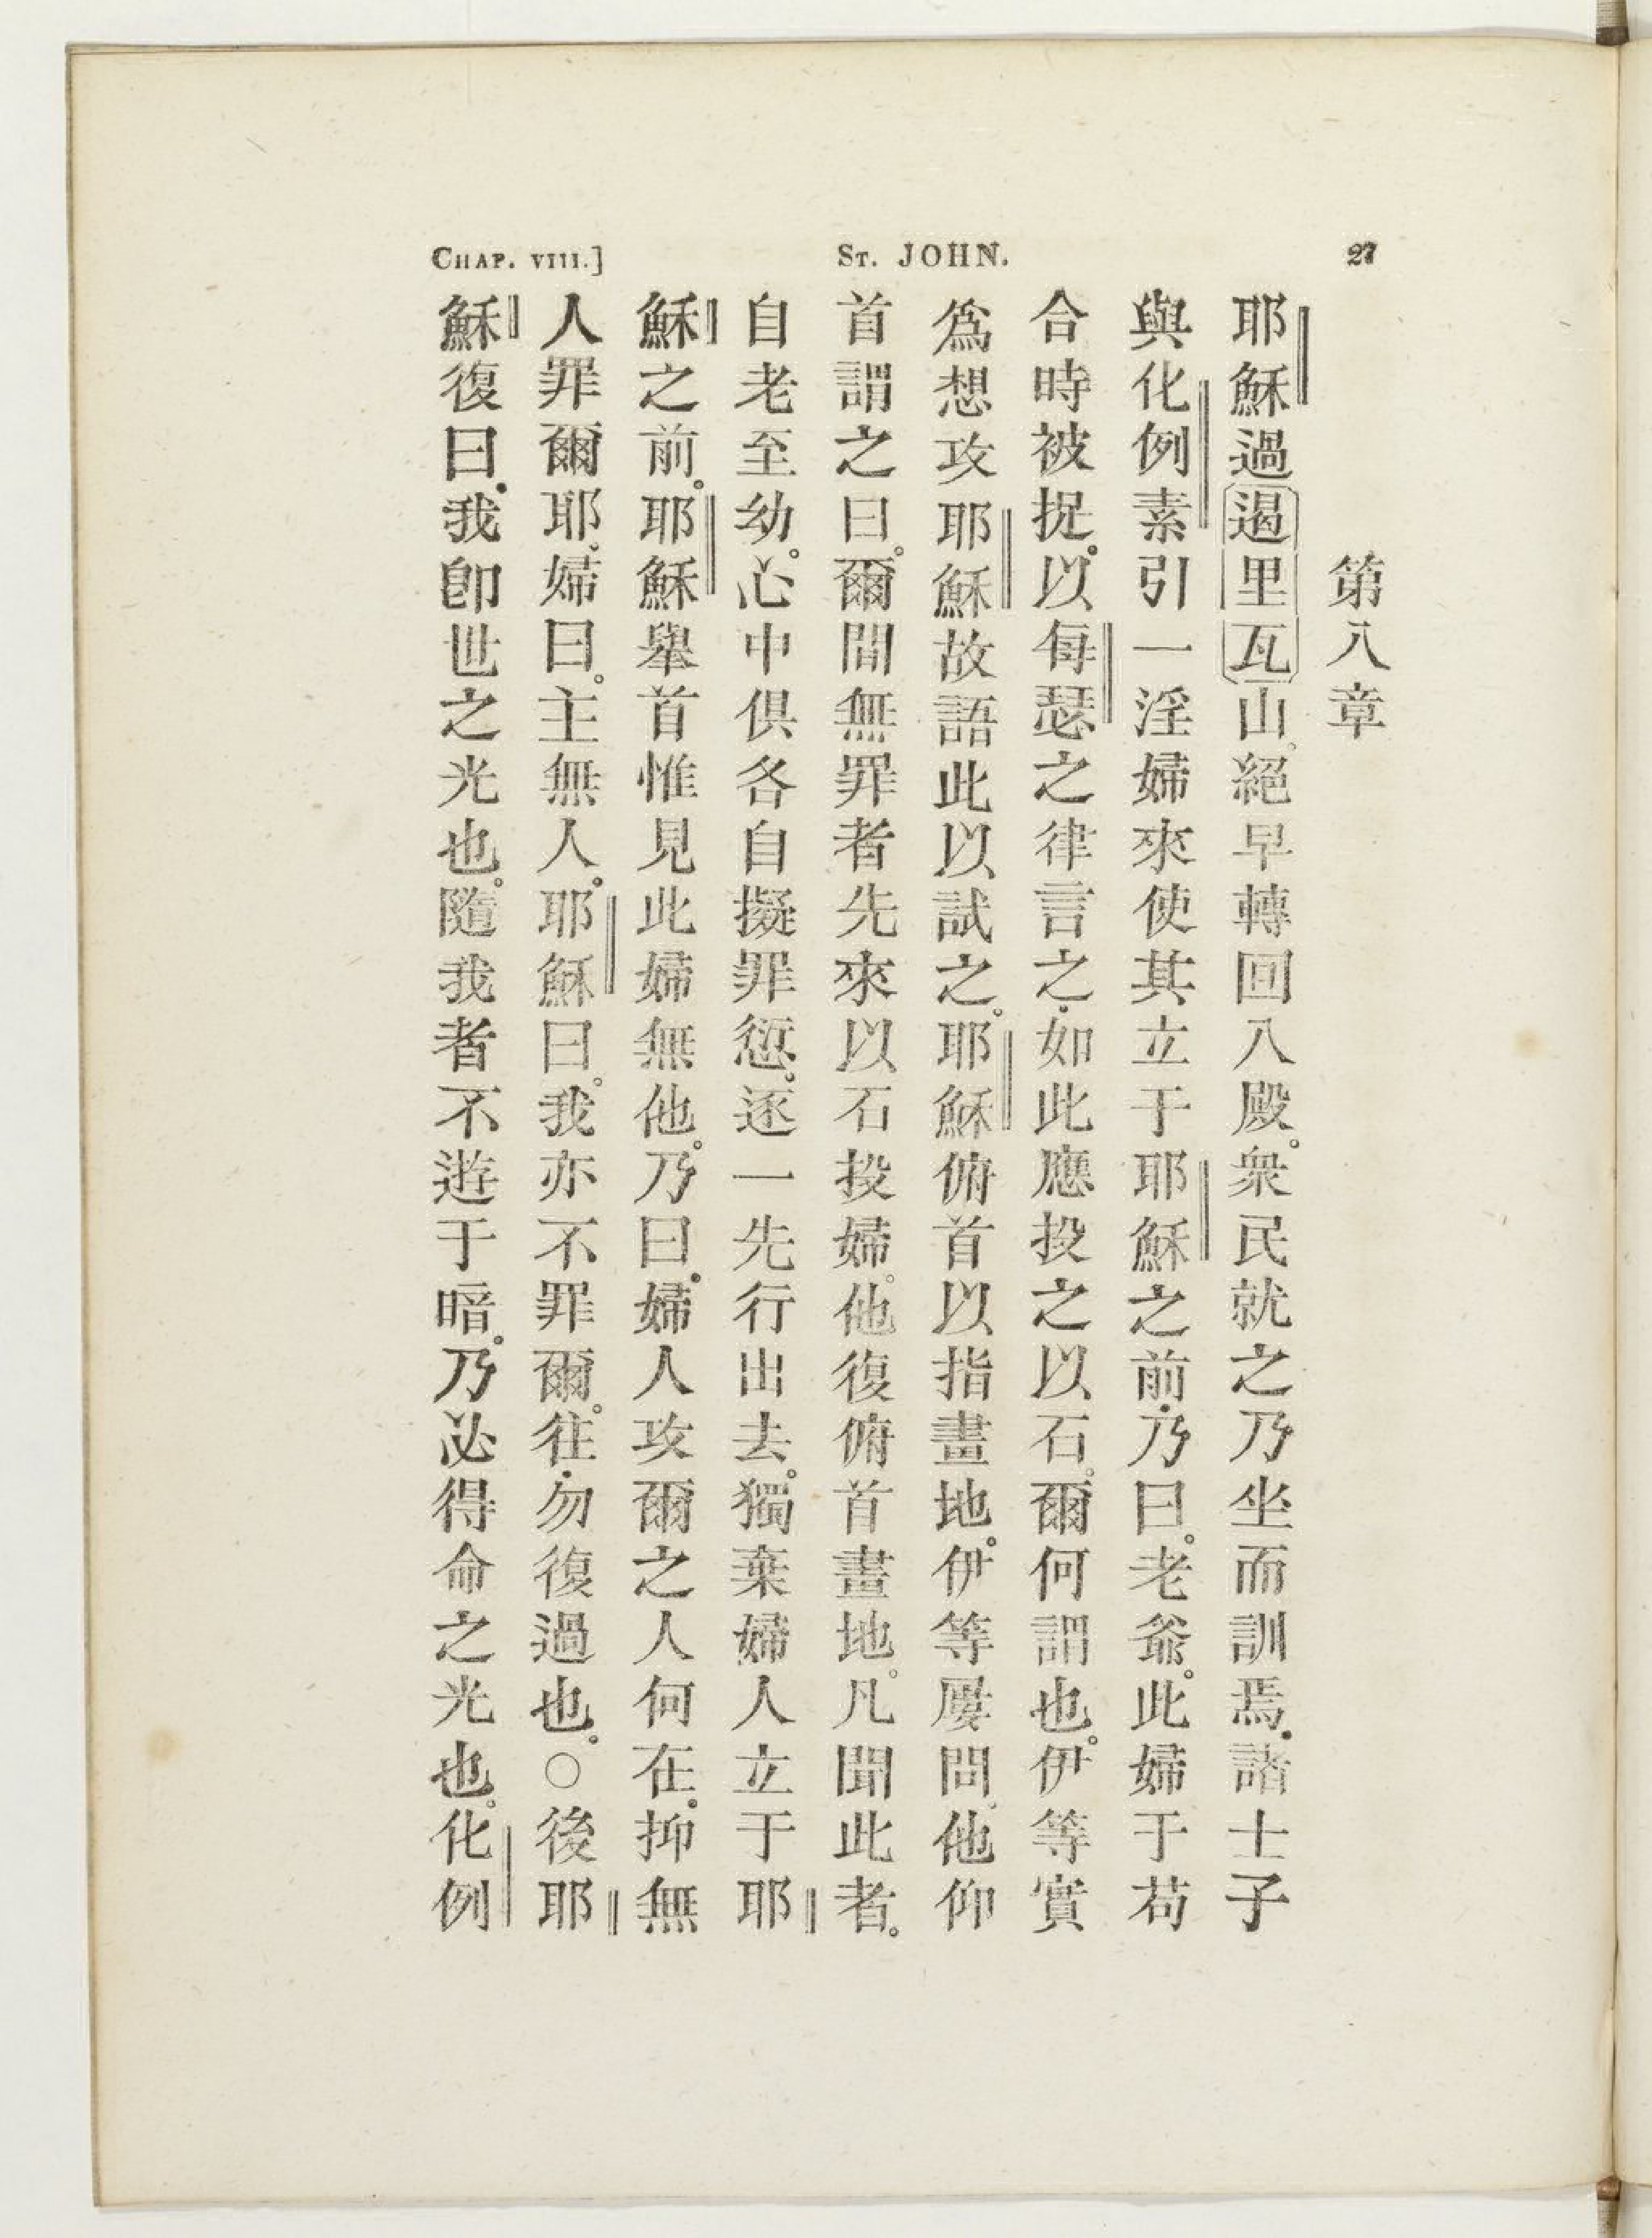 CHAP. VIII.] ST. JOHN. 27
第八章
耶穌過遏里瓦山。絕早轉回入殿。衆民就之乃坐而訓焉.諸士子
與化例素引一淫婦來使其立于耶穌之前.乃曰。老爺。此婦于苟
合時被捉。以每瑟之律言之.如此應投之以石。爾何謂也。伊等實
爲想攻耶穌故語此以試之。耶穌俯首以指畫地。伊等屢問。他仰
首謂之曰。爾間無罪者先來以石投婦。他復俯首畫地。凡聞此者。
自老至幼。心中俱各自擬罪愆。逐一先行出去。獨棄婦人立于耶
穌之前。耶穌舉首惟見此婦無他。乃曰.婦人攻爾之人何在.抑無
人罪爾耶。婦曰。主無人。耶穌曰。我亦不罪爾。往.勿復過也。○後耶
穌復曰.我卽世之光也。隨我者不遊于暗。乃必得命之光也。化例